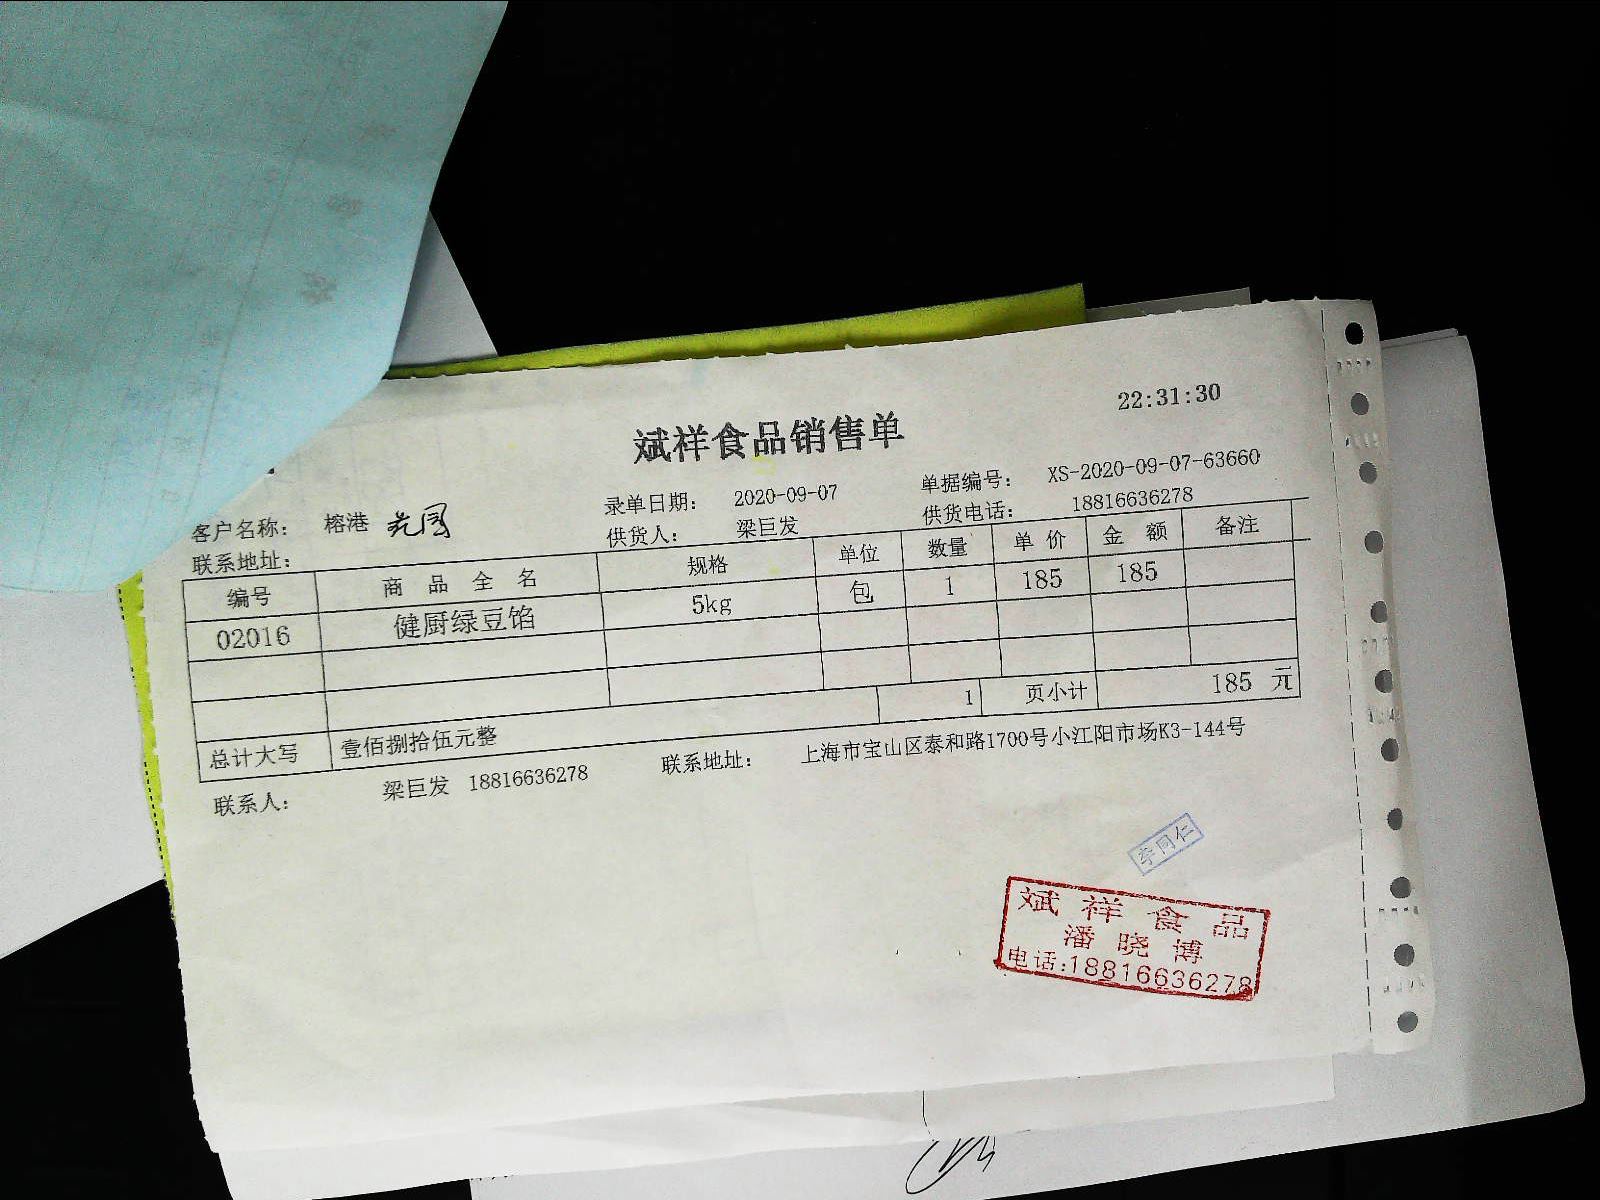 22:31:30
斌祥食品销售单
录单日期： 2020-09-07 单据编号： XS-2020-09-07-63660
客户名称： 榕港 供货人： 梁巨发 供货电话： 18816636278
联系地址：
编号 商品全名 规格 单位 数量 单价 金额 备注
02016 健厨绿豆馅 5kg 包 1 185 185
1 页小计 185 元
总计大写 壹佰捌拾伍元整
联系人： 梁巨发 18816636278 联系地址： 上海市宝山区泰和路1700号小江阳市场K3-144号
李同仁
斌祥食品
潘晓博
电话:18816636278